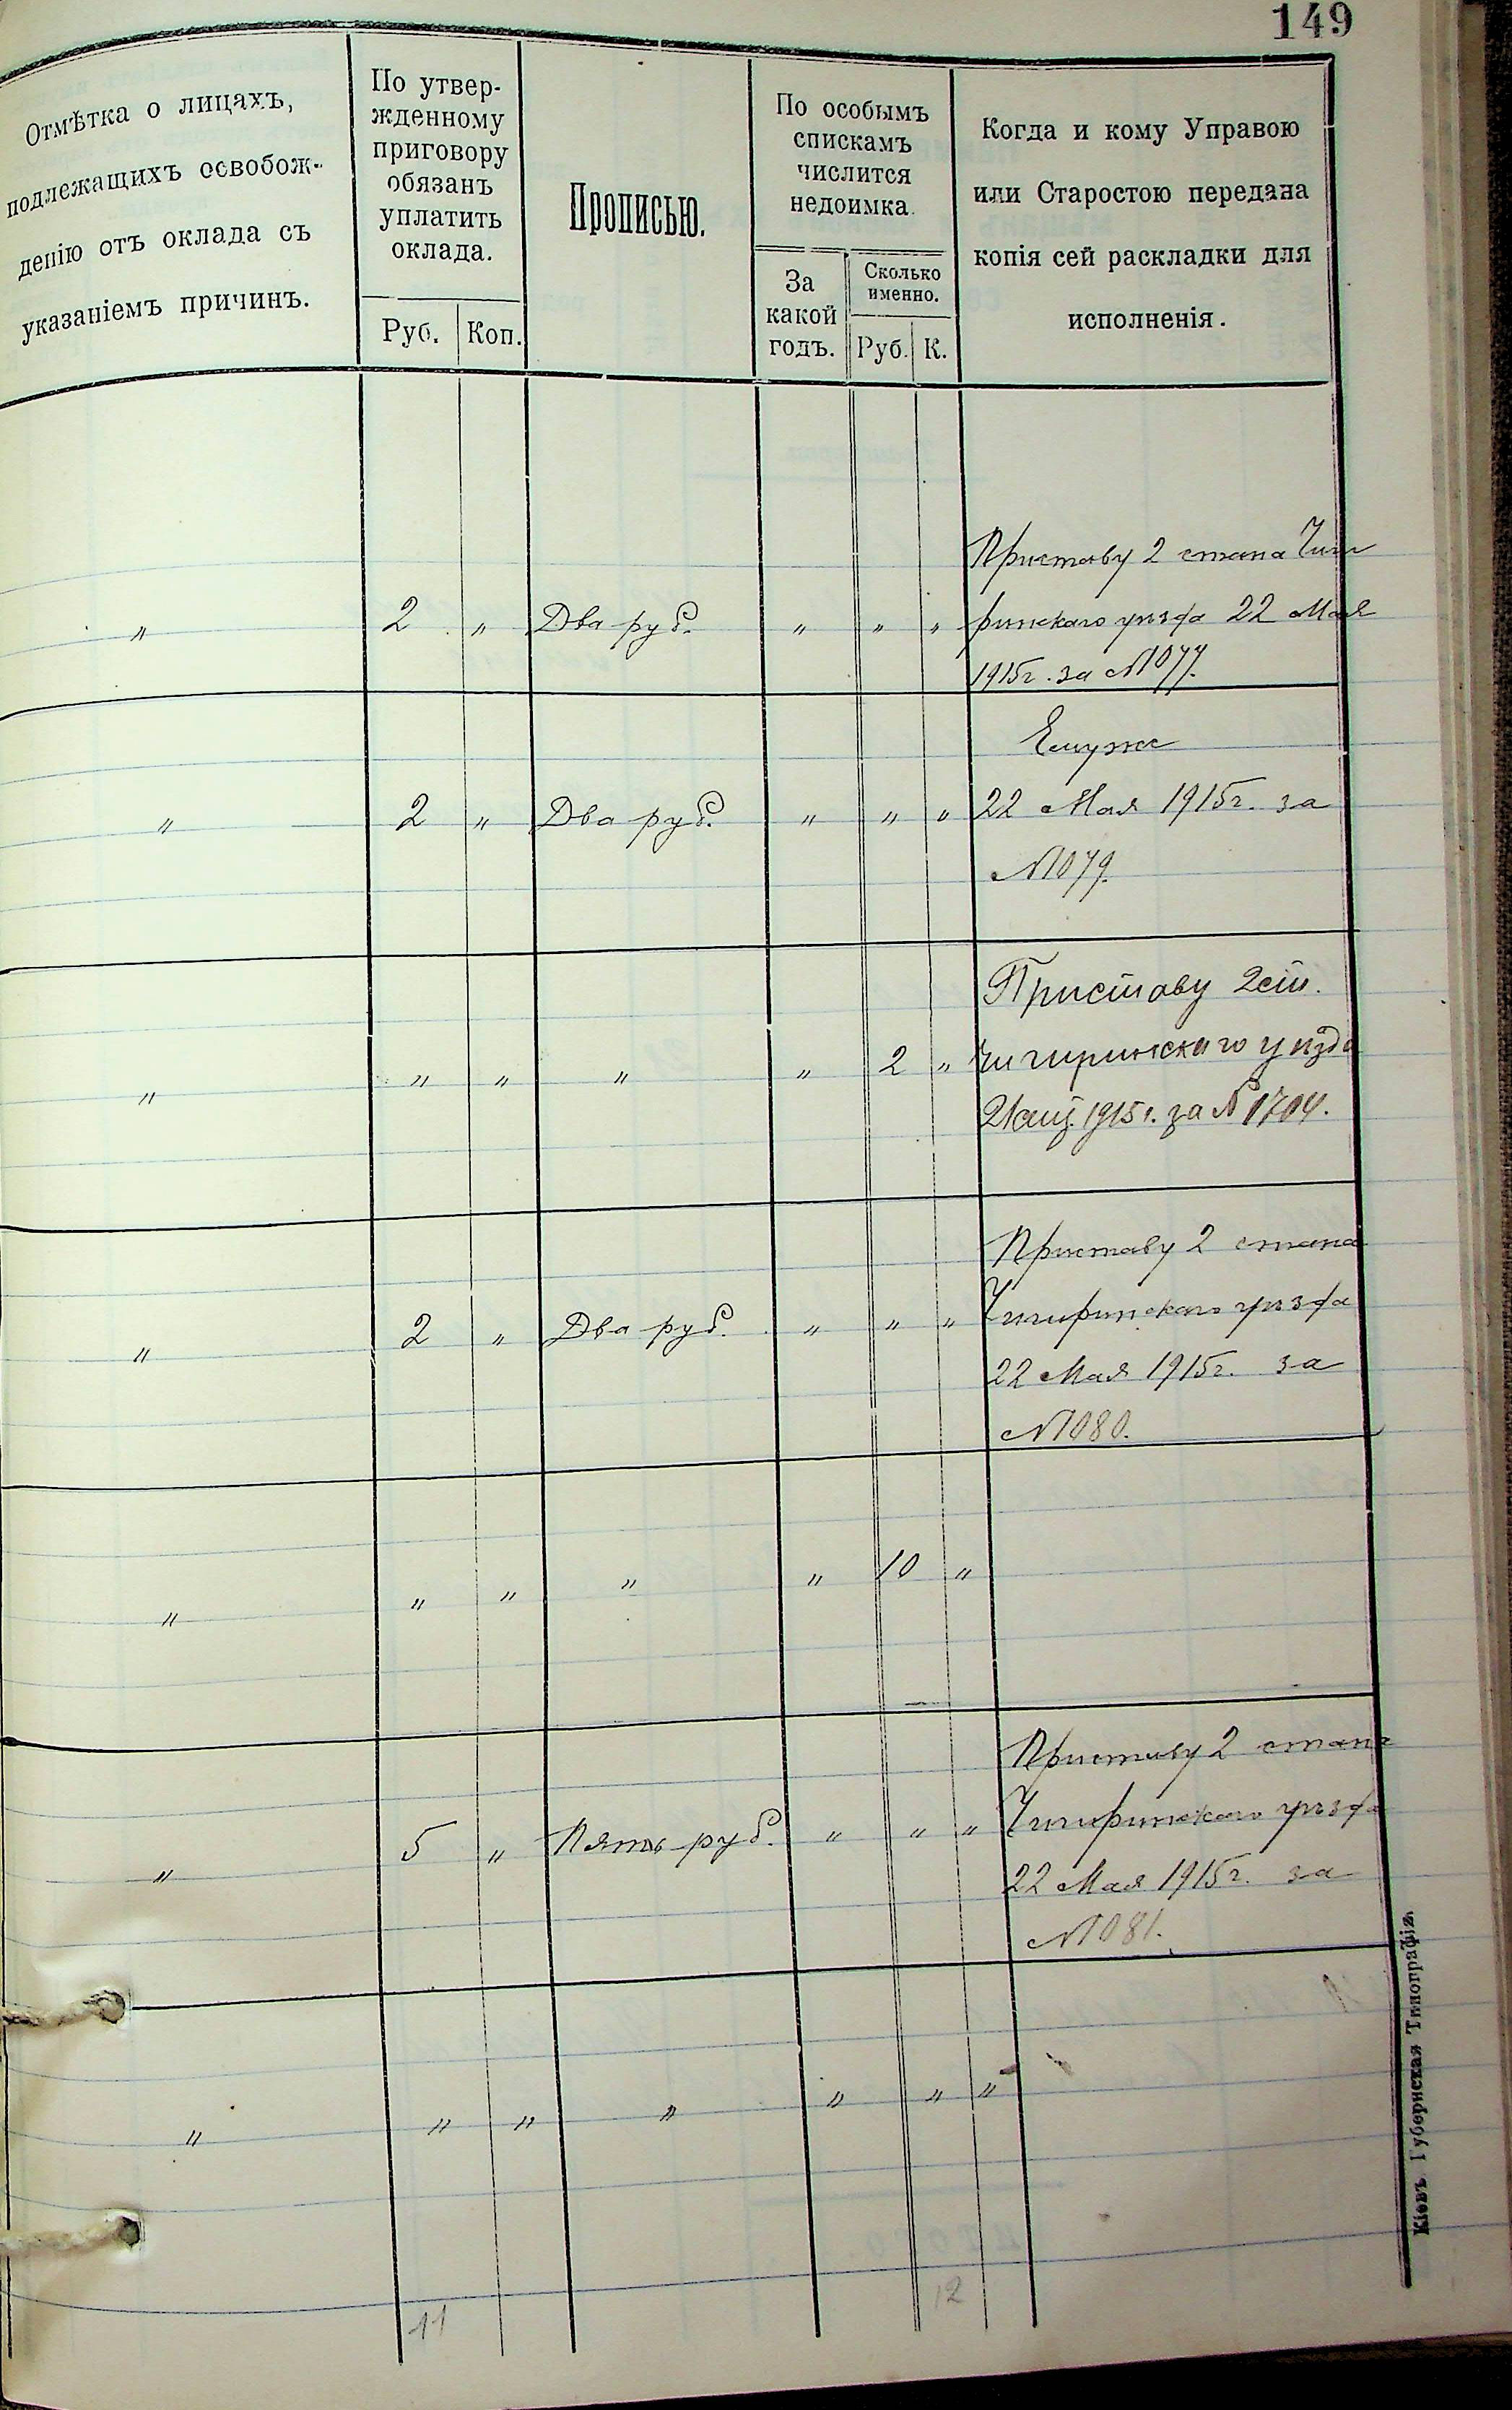 149
Отмѣтка о лицахъ,
подлежащихъ освобож-
денію отъ оклада съ
указаніемъ причинъ.
По утвер-
жденному
приговору
обязанъ
уплатить
оклада.
Руб. Коп.
Прописью.
По особымъ
спискамъ
числится
недоимка.
За
какой
годъ.
Сколько
именно.
Руб. К.
Когда и кому Управою
или Старостою передана
копія сей раскладки для
исполненія.
Приставу 2 стана Чиги
" 2 " Два руб. " " " ринскаго уѣзда 22 Мая
1915г. за №1077.
Ему же
" 2 " Два руб. " " " 22 Мая 1915г. за
№1079.
Приставу 2 ст.
" " " " " 2 " Чигиринскаго уѣзда
21 1915г. за №1704.
Приставу 2 стана
" 2 " Два руб. " " " Чигиринскаго уѣзда
22 Мая 1915г. за
№1080.
" " " " " 10 "
Приставу 2 стана
" 5 " Пять руб. " " " Чигиринскаго уѣзда
22 Мая 1915г. за
№1081.
" " " " " " "
11 12
Кіевъ. Губернская Типографія